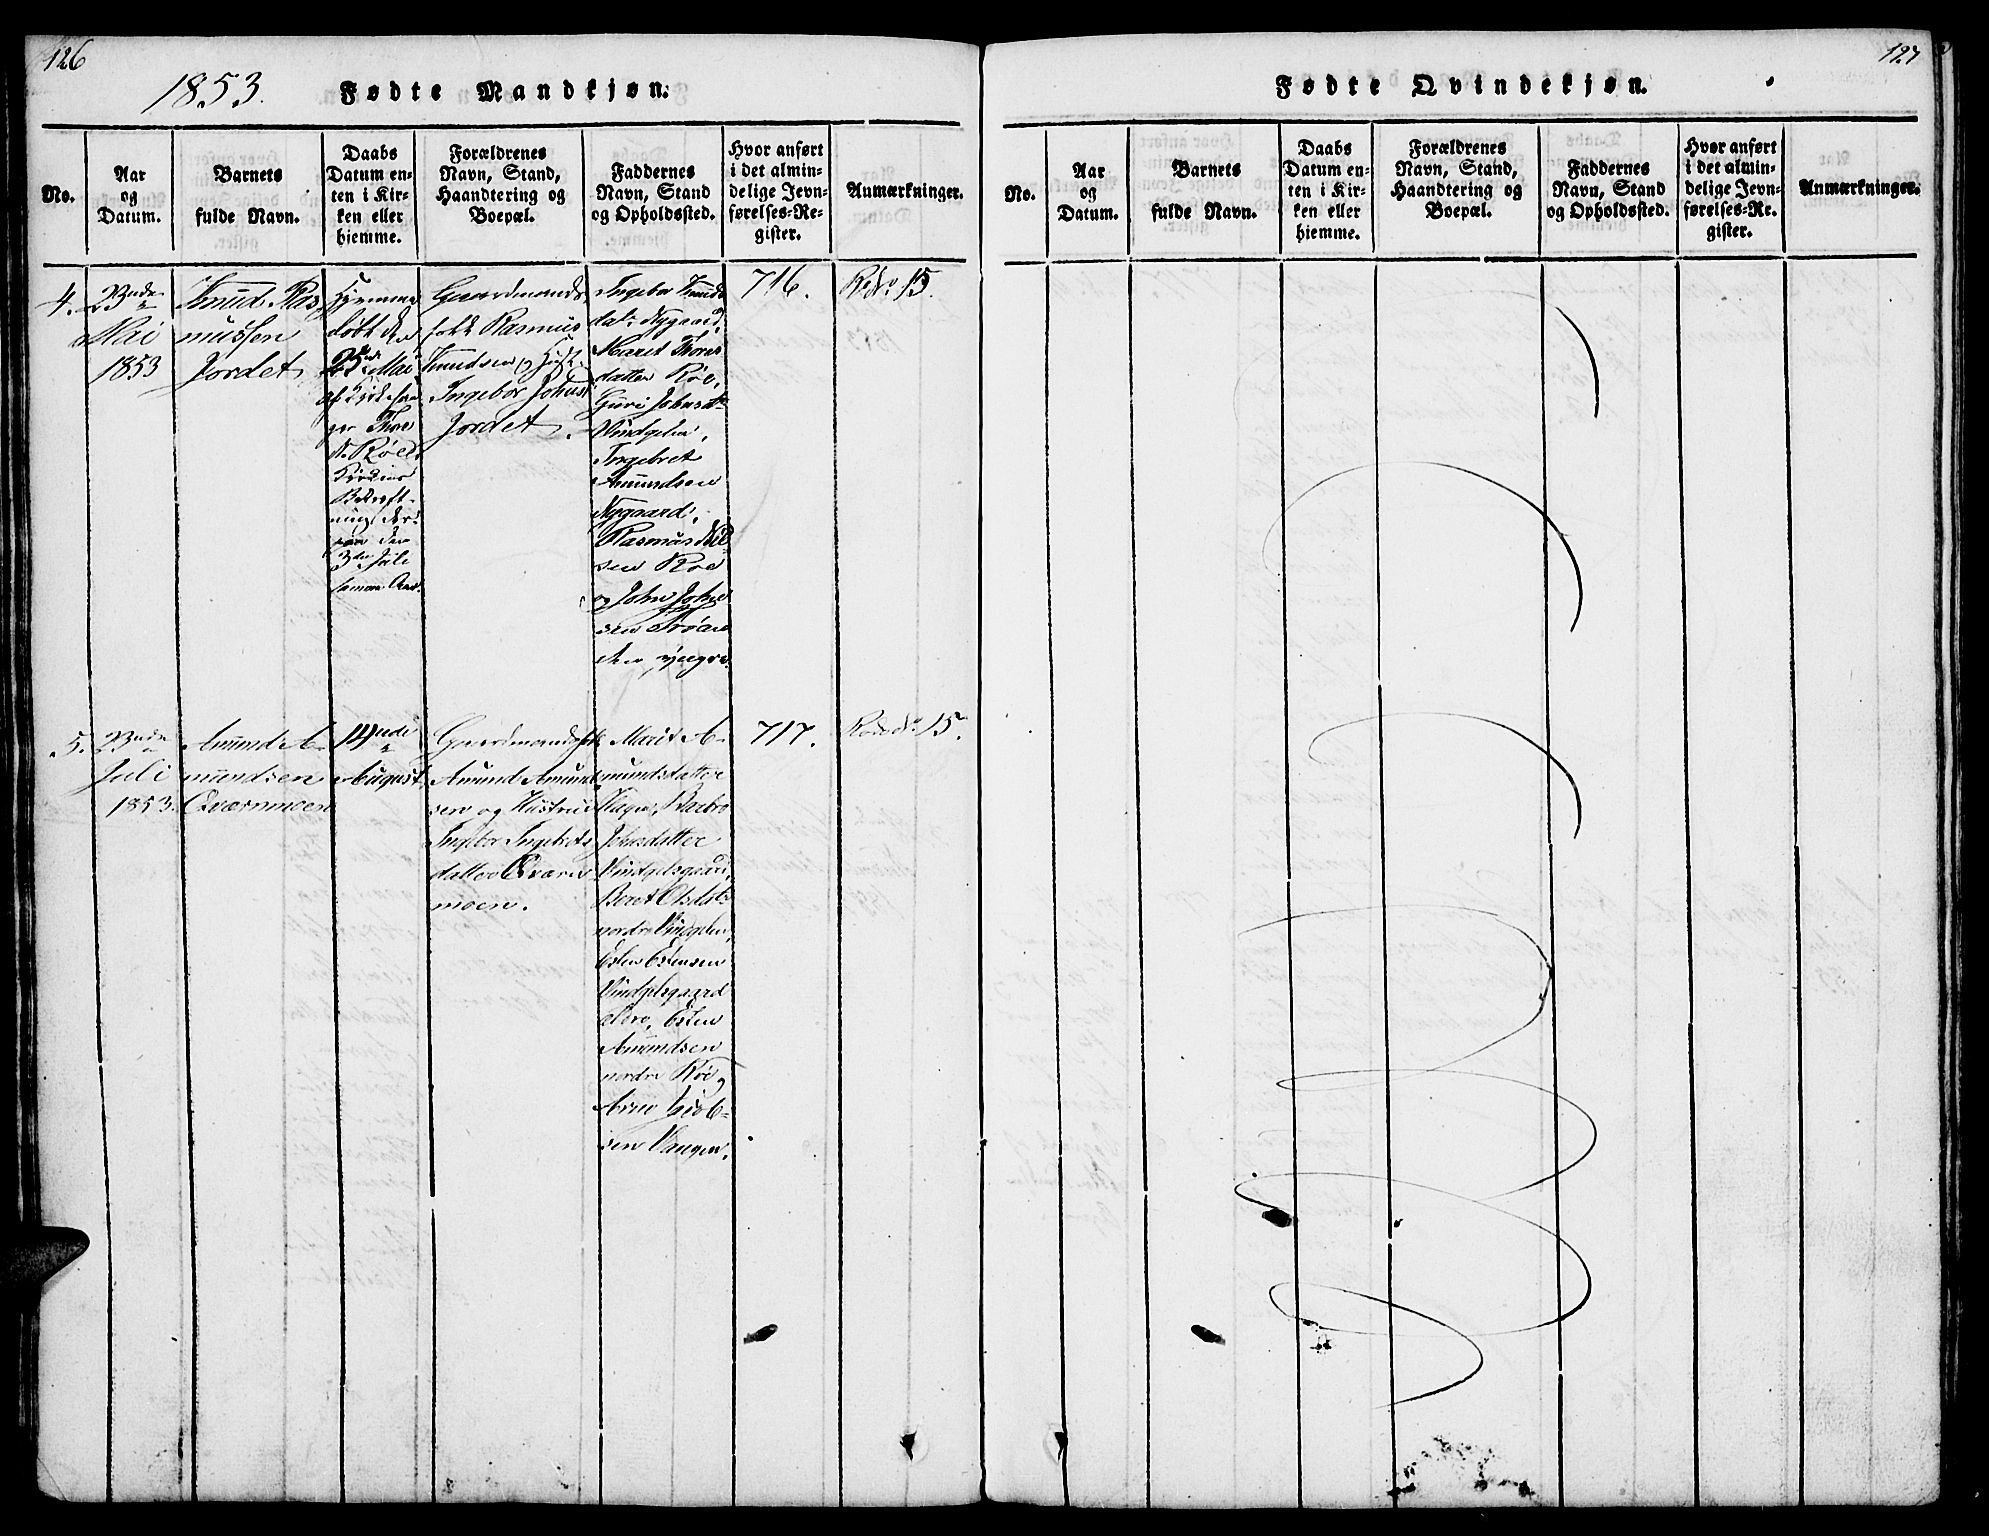 126
1853.
Fødte Mandkjøn.
No.
Aar
og
Datum.
Barnets
fulde Navn.
Daabs
Datum en-
ten i Kir-
ken eller
hjemme.
Forældrenes
Navn, Stand,
Haandtering og
Boepæl.
Faddernes
Navn, Stand
og Opholdssted.
Hvor anført
i det almin-
delige Jevn-
førelses-Re-
gister.
Anmærkninger.
4.
23
Mai
1853
Knud Ras
mussen
Jordet
Hjemme
døbt den
25 Mai
af Kirkesan
ger Thore
N. Røe.
Kirkens
Bekræft-
ning der-
paa den
3die Juli
samme Aar.
Gaardmands
folk Rasmus
Knudsen og Hust.
Ingebor Johns
Jordet.
Ingebor Knuds
dat. Nygaard,
Maret Thores
datter Røe,
Guri Johnsdtr
Vindgelen,
Ingebret
Amundsen
Nygaard,
Rasmus Niel
sen Røe
og John John
sen Trøen
den yngre.
716.
Rode No 15.
5.
23
Juli
1853.
Amund A-
mundsen
Qværnmoen
14
August
Gaardmandsfolk
Amund Amund
sen og Hustrue
Ingebor Ingebrets
datter Qværn
moen.
Marit A-
mundsdatter
Hagen, Barbro
Johnsdatter
Vindgelsgaard,
Beret Olsdat.
nordre Vingelen,
Esten Estensen
Vindgelsgaard
Esten
Amundsen
nordre Røe
Arne Jacob-
sen Vangen.
717.
Rode No 15.
127
Fødte Qvindekjøn.
No.
Aar
og
Datum.
Barnets
fulde Navn.
Daabs
Datum en-
ten i Kir-
ken eller
hjemme.
Forældrenes
Navn, Stand,
Haandtering og
Boepæl.
Faddernes
Navn, Stand
og Opholdssted.
Hvor anført
i det almin-
delige Jevn-
førelses-Re-
gister.
Anmærkninger.